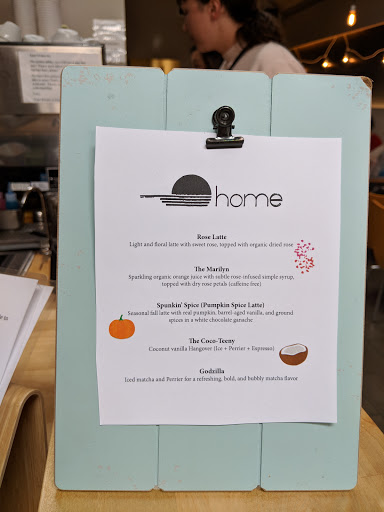 home
Rose Latte
Light and floral latte with sweet rose, topped with organic dried rose
The Marilyn
Sparkling organic orange juice with subtle rose-infused simple syrup,
topped with dry rose petals (caffeine free)
Spunkin' Spice (Pumpkin Spice Latte)
Seasonal fall latte with real pumpkin, barrel-aged vanilla, and ground
spices in a white chocolate ganache
The Coco-Teeny
Coconut vanilla Hangover (Ice + Perrier + Espresso)
Godzilla
Iced matcha and Perrier for a refreshing, bold, and bubbly matcha flavor